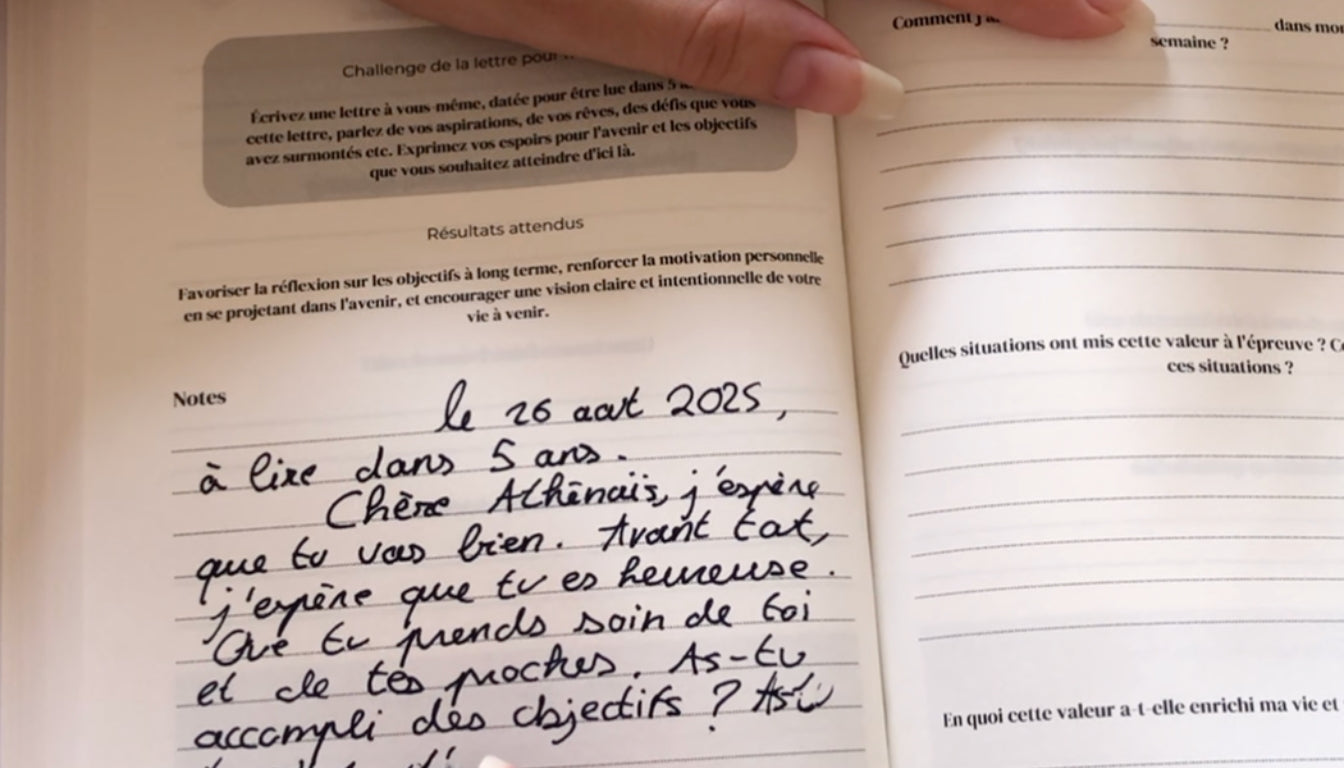 Challenge de la lettre pour
Écrivez une lettre à vous-même, datée pour être lue dans 5
cette lettre, parlez de vos aspirations, de vos rêves, des défis que vous
avez surmontés etc. Exprimez vos espoirs pour l'avenir et les objectifs
que vous souhaitez atteindre d'ici là.
Résultats attendus
Favoriser la réflexion sur les objectifs à long terme, renforcer la motivation personnelle
en se projetant dans l'avenir, et encourager une vision claire et intentionnelle de votre
vie à venir.
Notes
le 26 aout 2025,
à lire dans 5 ans.
Chère Athénaïs, j'espère
que tu vas bien. Avant tout,
j'espère que tu es heureuse.
Que tu prends soin de toi
et de tes proches. As-tu
accompli des objectifs ? As-tu
Comment j'ai dans mon
semaine ?
Quelles situations ont mis cette valeur à l'épreuve ?
ces situations ?
En quoi cette valeur a-t-elle enrichi ma vie et